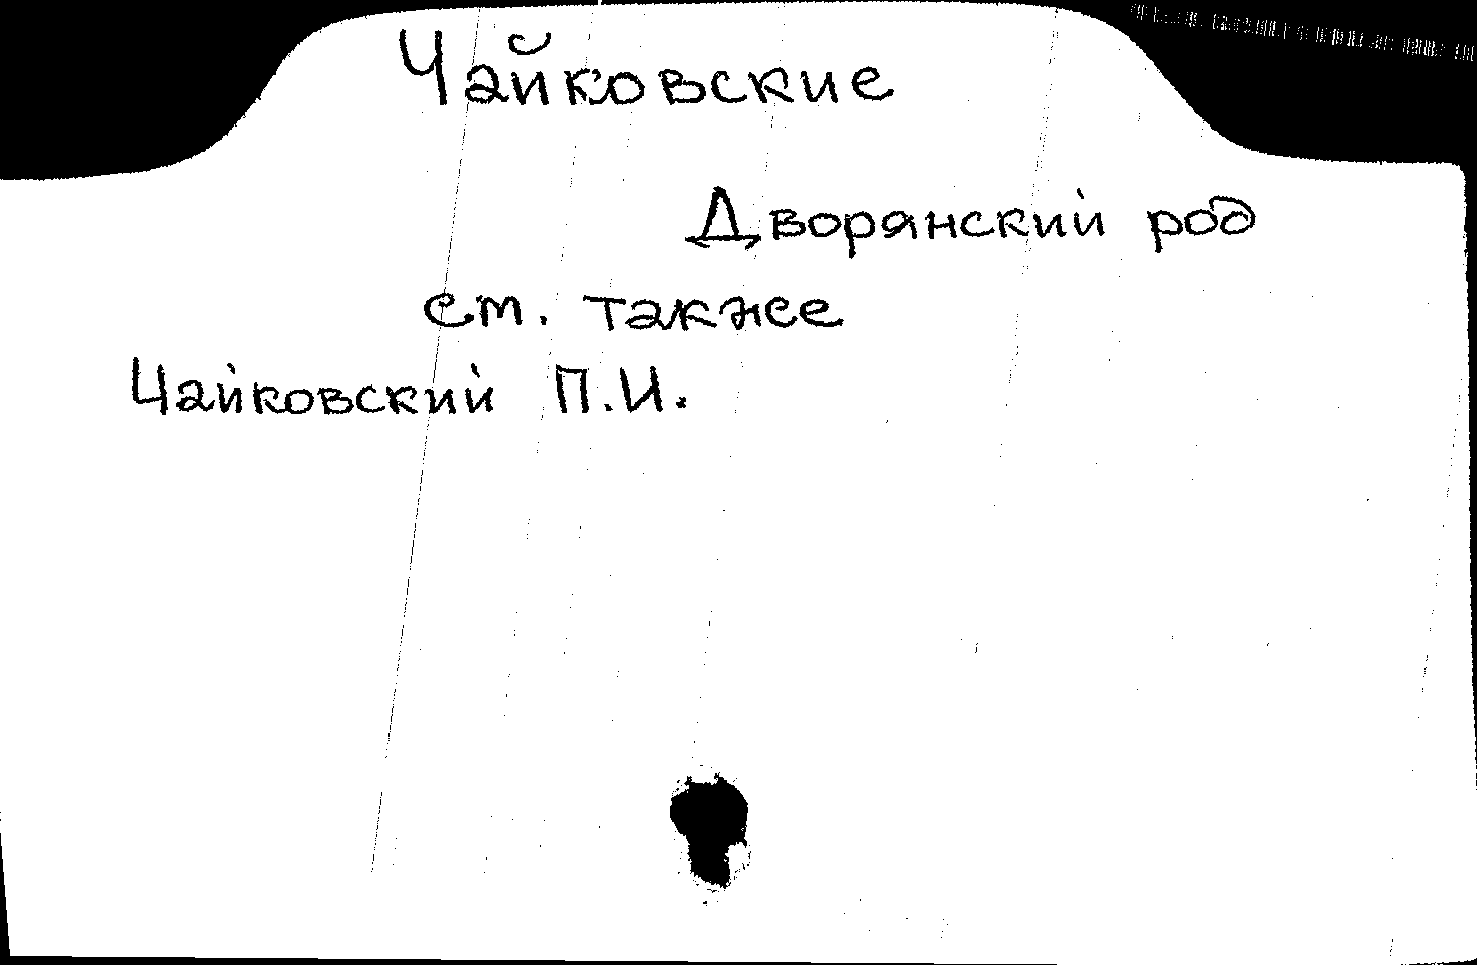 Чайковские
Дворянский род
см. также
Чайковский П.И.